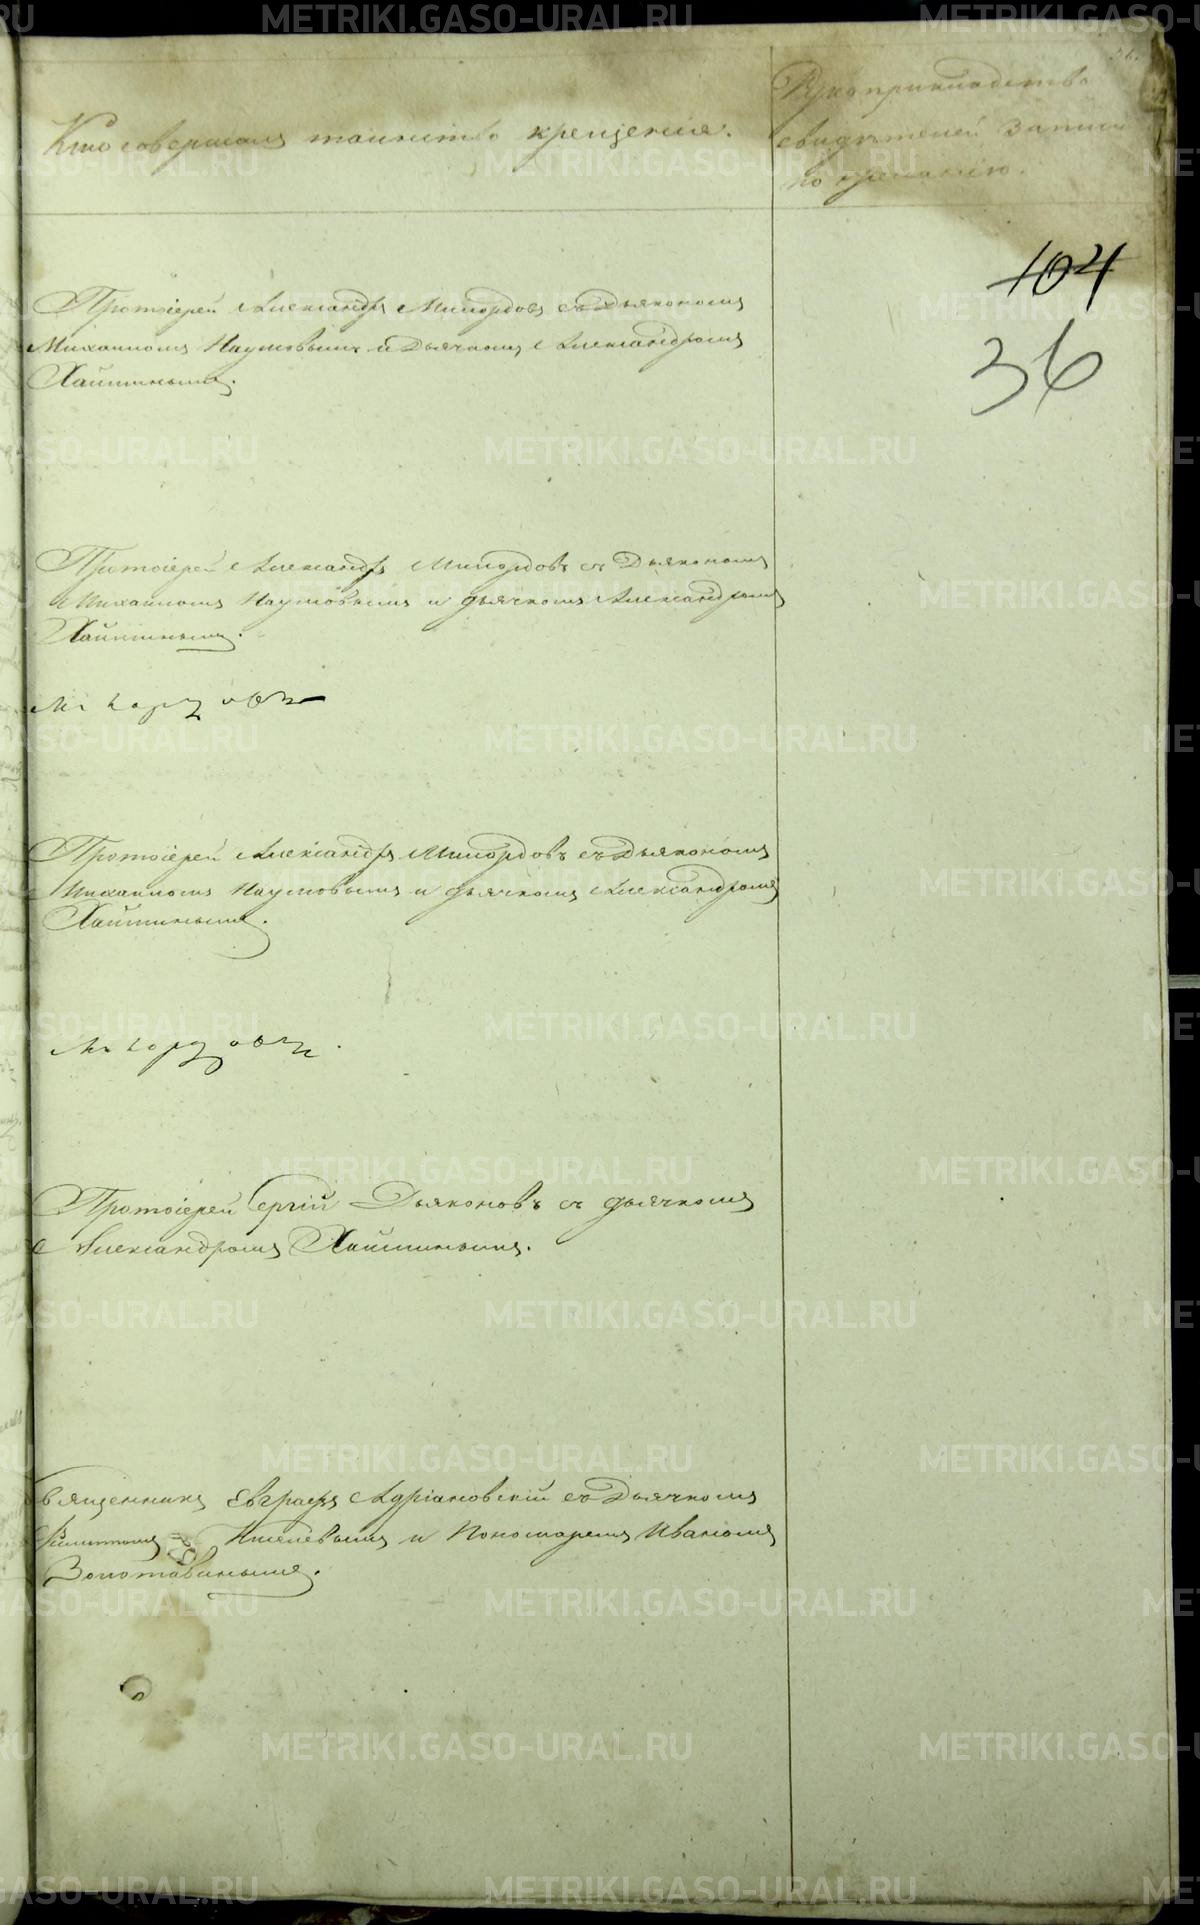 Кто совершалъ таинство крещенія.
Рукоприкладство
свидѣтелей записи
по желанію.
104
36
Протоіерей Александръ Милордовъ съ Дьякономъ
Михаиломъ Наумовымъ и Дьячкомъ Александромъ
Хайминымъ.
Протоіерей Александръ Милордовъ съ Дьякономъ
Михаиломъ Наумовымъ и дьячкомъ Александромъ
Хайминымъ.
Протоіерей Александръ Милордовъ съ Дьякономъ
Михаиломъ Наумовымъ и дьячкомъ Александромъ
Хайминымъ.
Протоіерей Сергій Дьяконовъ съ дьячкомъ
Александромъ Хайминымъ.
Священникъ Евграфъ Адріановскій съ Дьячкомъ
Киселевымъ и Пономаремъ Иваномъ
Золотавинымъ.
METRIKI.GASO-URAL.RU